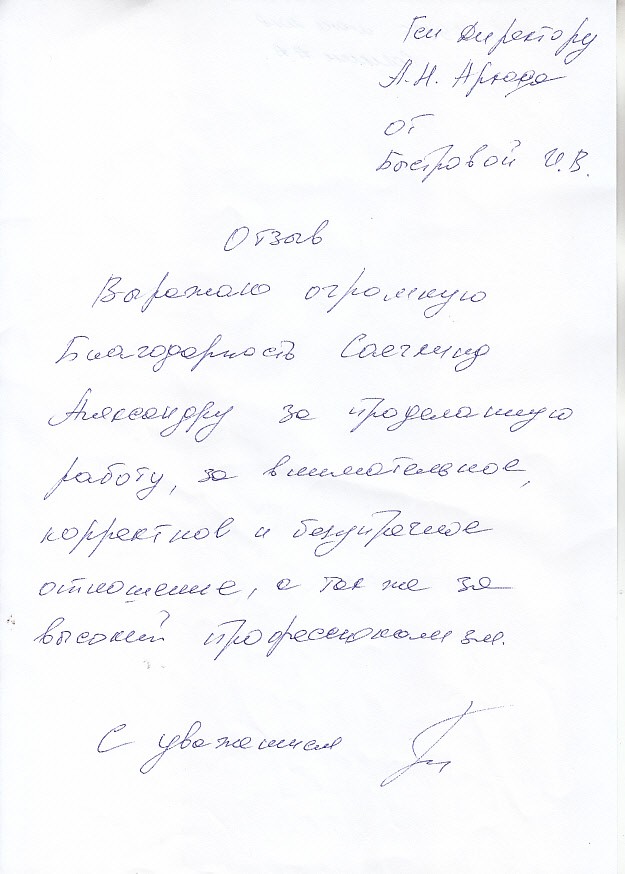 Ген Директору
А.Н.
от
Быстровой И.В.
Отзыв
Выражаю огромную
Благодарность
Александру за проделанную
работу, за внимательное,
корректное и безупречное
отношение, а так же за
высокий профессионализм.
С уважением